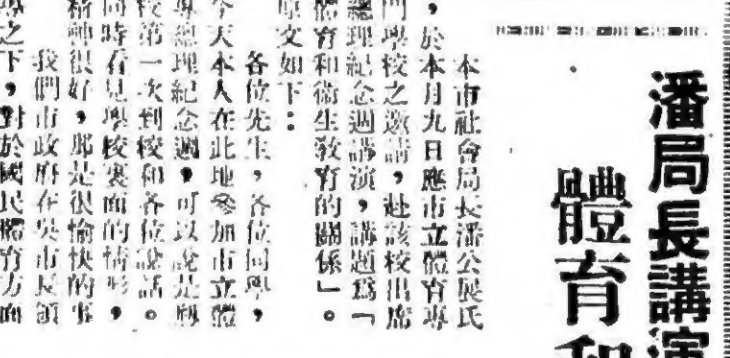 潘局長講演
體育和
本市社會局長潘公展氏
，於本月九日應市立體育專
門學校之邀請，赴該校出席
總理紀念週講演，講題爲「
體育和衞生敎育的關係」。
原文如下：
各位先生，各位同學，
今天本人在此地參加市立體
專總理紀念週，可以說是到
校第一次到校和各位說話。
同時看見學校裏面的情形，
精神很好，那是很愉快的事
我們市政府在吳市長領
導之下，對於國民體育方面